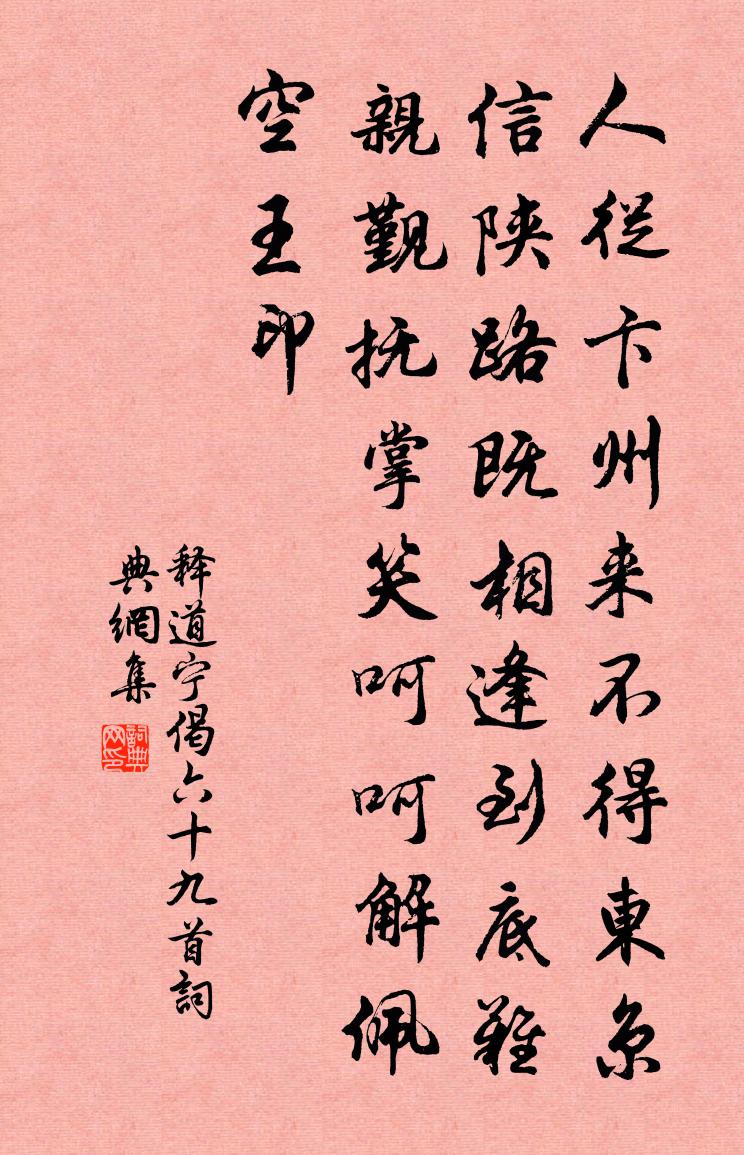 人從卞州来不得東京
信陝路既相逢到底難
親覲抚掌笑呵呵解佩
空王印
释道宁偈六十九首詞
典網集
詞典
网印